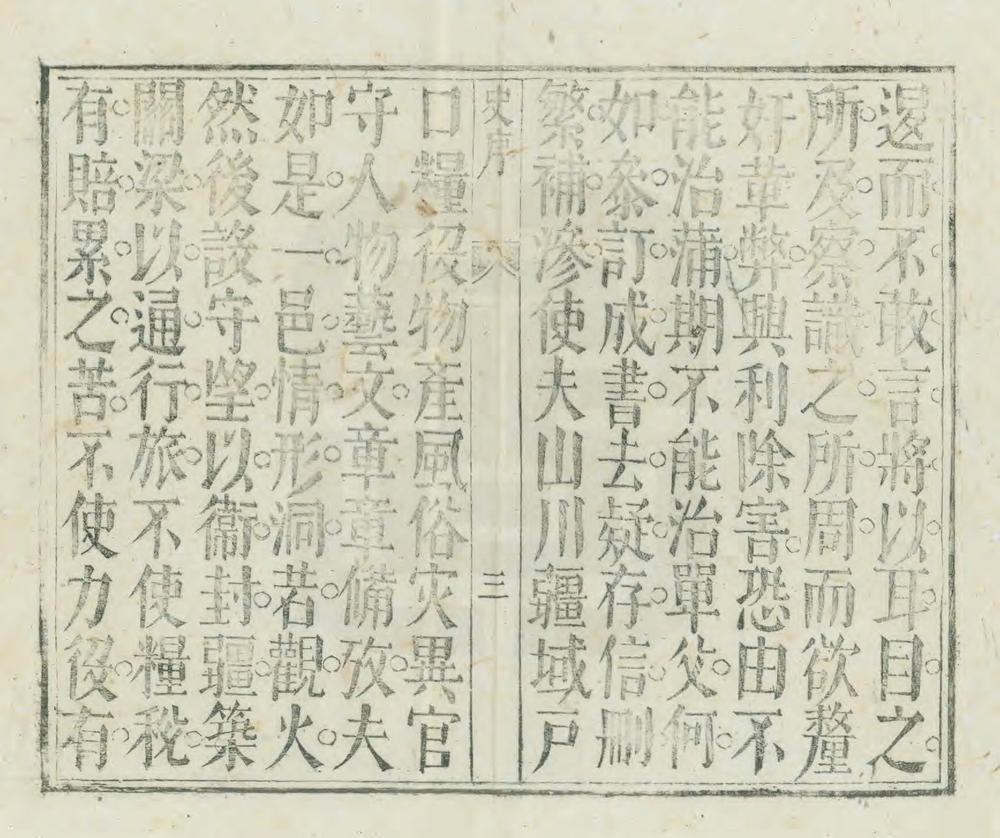 遑而不敢言將以耳目之
所及察識之所周而欲釐
奸革弊興利除害恐由不
能治蒲期不能治單父何
如叅訂成書去疑存信刪
繁補滲使夫山川疆域戸
史序 三
口糧役物產風俗灾異官
守人物藝文章章備攷夫
如是一邑情形洞若觀火
然後設守望以衞封疆築
關梁以通行旅不使糧稅
有賠累之苦不使力役有